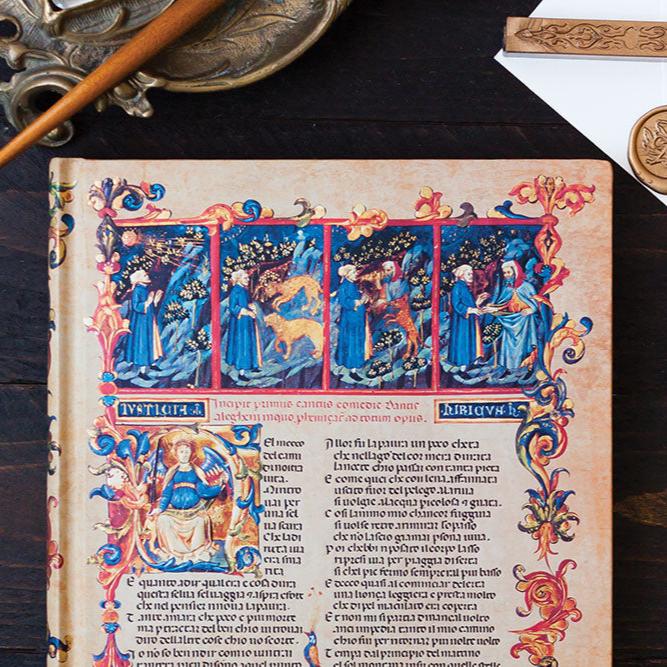 IUSTICIA
Incipit primus cantus comedie Dantis
alegherii in quo
ad totum opus.
El meço
del cami
di nostra
uita.
uai per
una sel
ua scura
Che la di
ricta uia
era sma
rita
E quanto adir qual era e cosa dura
questa selua seluaggia & aspra e forte
che nel pensier rinoua la paura.
Tante amara che poco e piu morte
ma per tractar del ben chio ui trouai
diro dellaltre cose chio no scorte.
I o no so ben ridir comio uintrai
Allor fu la paura un poco cheta
che nellago del cor mera durata
la nocte chio passai con tanta pieta
E come quei che con lena affannata
uscito fuor del pelago alariua
si uolge alacqua
& guata.
C osi lanimo mio chancor fuggiua
si uolse retro arimirar lo passo
che no lascio giamai psona uiua.
P oi
riposato il corpo lasso
ripresi uia per piaggia diserta
si chel pie fermo sempre era il piu basso
E
quasi al cominciar delerta
una lionça leggiera e presta molto
che di pel maculato era coperta
E non mi si partia dinançi al uolto
anci impedia tanto il mio camino
chio fui per ritornar piu uolte uolto
T empo dal principio del matino
el sol montaua